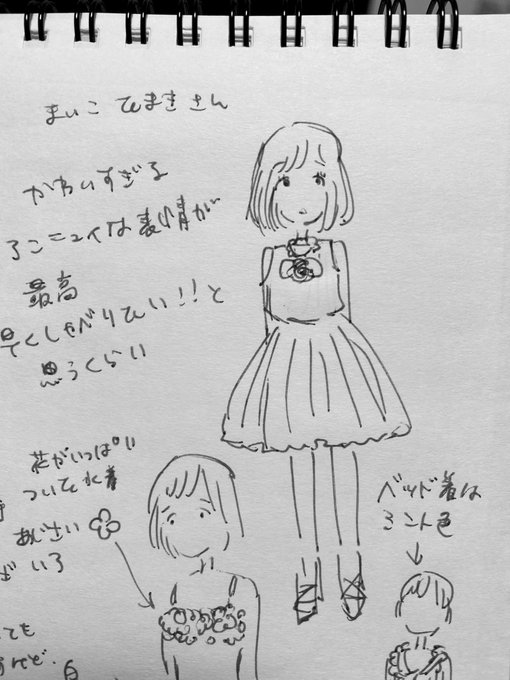 まいこ たまき さん
かわいすぎる
アンニュイな表情が
最高
早くしゃべりたい!!と
思うくらい
花がいっぱい
ついた水着
あじさい
ベッド着は
ミント色
ても